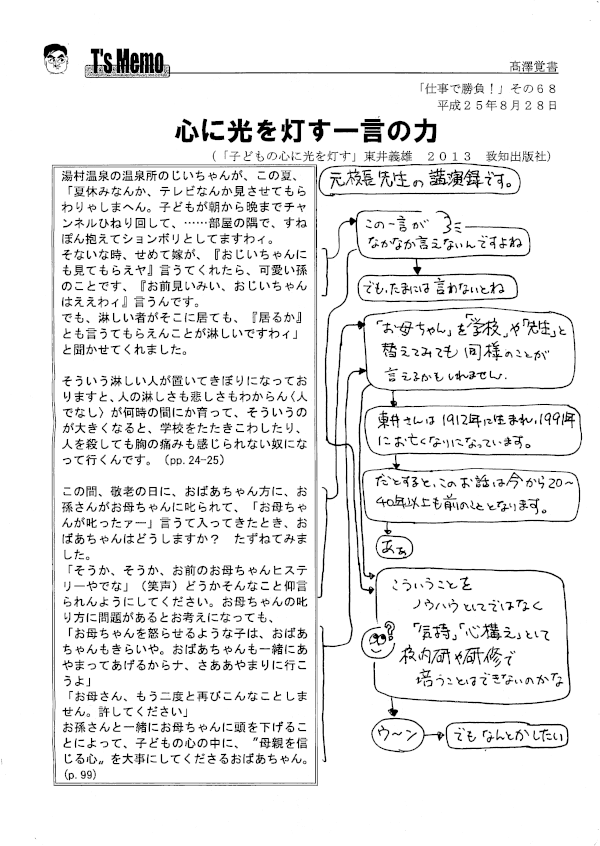 T's Memo
髙澤覚書
「仕事で勝負！」その６８
平成２５年８月２８日
心に光を灯す一言の力
（「子どもの心に光を灯す」東井義雄　２０１３　致知出版社）
湯村温泉の温泉所のじいちゃんが、この夏、
「夏休みなんか、テレビなんか見させてもら
わりゃしまへん。子どもが朝から晩までチャ
ンネルひねり回して、……部屋の隅で、すね
ぽん抱えてションボリとしてますわィ。
そないな時、せめて嫁が、『おじいちゃんに
も見てもらえヤ』言うてくれたら、可愛い孫
のことです、『お前見いみい、おじいちゃん
はええわィ』言うんです。
でも、淋しい者がそこに居ても、『居るか』
とも言うてもらえんことが淋しいですわィ」
と聞かせてくれました。
そういう淋しい人が置いてきぼりになってお
りますと、人の淋しさも悲しさもわからん〈人
でなし〉が何時の間にか育って、そういうの
が大きくなると、学校をたたきこわしたり、
人を殺しても胸の痛みも感じられない奴にな
って行くんです。（pp.24-25）
この間、敬老の日に、おばあちゃん方に、お
孫さんがお母ちゃんに叱られて、「お母ちゃ
んが叱ったァー」言うて入ってきたとき、お
ばあちゃんはどうしますか？　たずねてみま
した。
「そうか、そうか、お前のお母ちゃんヒステ
リーやでな」（笑声）どうかそんなこと仰言
られんようにしてください。お母ちゃんの叱
り方に問題があるとお考えになっても、
「お母ちゃんを怒らせるような子は、おばあ
ちゃんもきらいや。おばあちゃんも一緒にあ
やまってあげるからナ、さああやまりに行こ
うよ」
「お母さん、もう二度と再びこんなことしま
せん。許してください」
お孫さんと一緒にお母ちゃんに頭を下げるこ
とによって、子どもの心の中に、〝母親を信
じる心〟を大事にしてくださるおばあちゃん。
（p.99）
元校長先生の講演録です。
この一言が
なかなか言えないんですよね
でも、たまには言わないとね
「お母ちゃん」を「学校」や「先生」と
替えてみても同様のことが
言えるかもしれません。
東井さんは1912年に生まれ、1991年
にお亡くなりになっています。
だとすると、このお話は今から20～
40年以上も前のこととなります。
あぁ
こういうことを
ノウハウとしてではなく
「気持」「心構え」として
校内研や研修で
培うことはできないのかな
ウ～ン
でもなんとかしたい